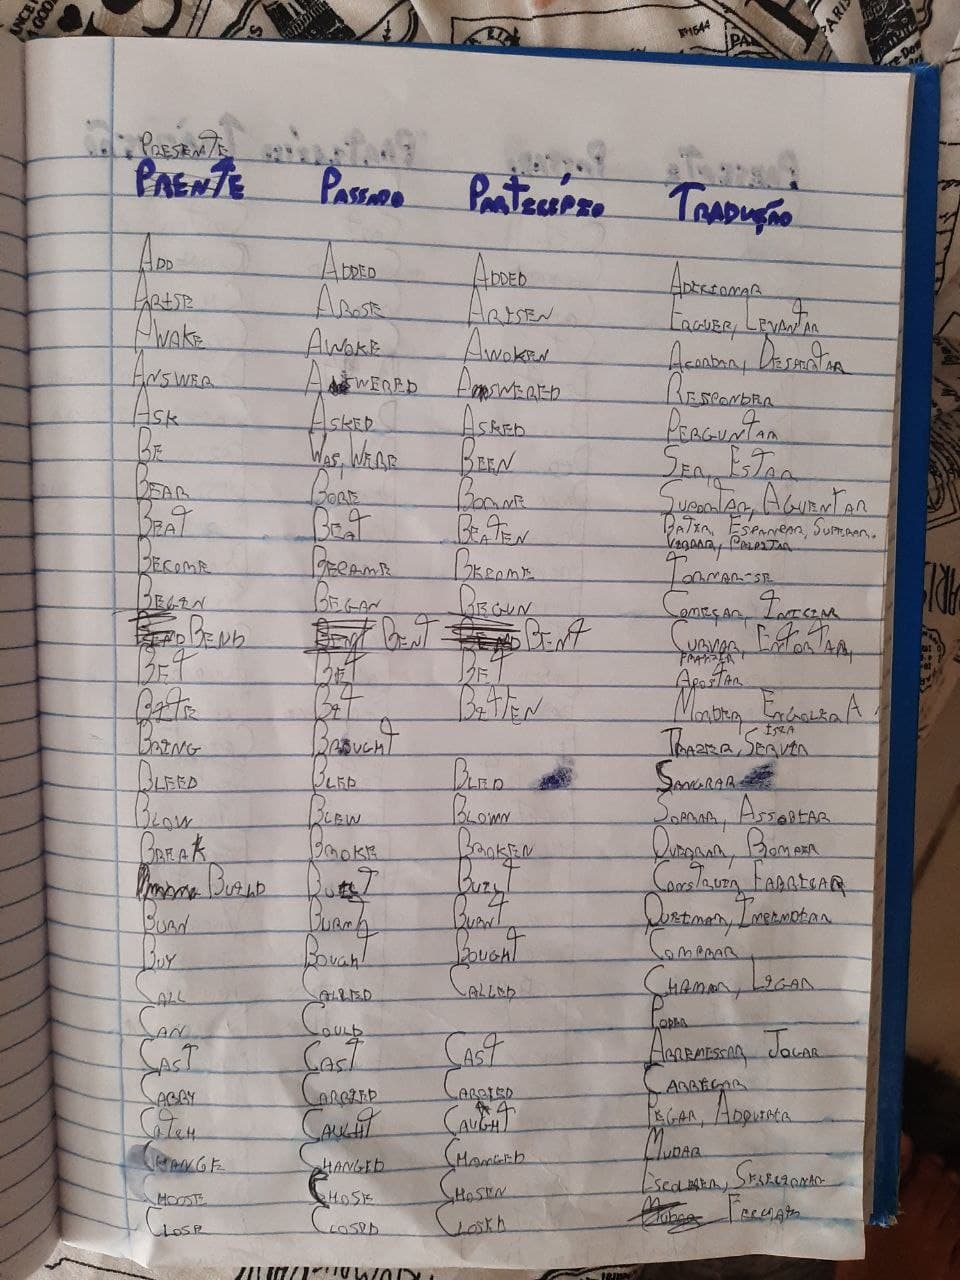 PRESENTE
PRENTE PASSADO PARTICÍPIO TRADUÇÃO
ADD ADDED ADDED ADICIONAR
ARISE AROSE ARISEN ERGUER, LEVANTAR
AWAKE AWOKE AWOKEN ACORDAR, DESPERTAR
ANSWER ANSWERED ANSWERED RESPONDER
ASK ASKED ASKED PERGUNTAR
BE WAS, WERE BEEN SER, ESTAR
BEAR BORE BORNE SUPORTAR, AGUENTAR
BEAT BEAT BEATEN BATER, ESPANCAR, SUPERAR,
VIBRAR, PALPITAR
BECOME BECAME BECOME TORNAR-SE
BEGIN BEGAN BEGUN COMEÇAR, INICIAR
BEND BENT BENT CURVAR, ENTORTAR,
FRANZIR
BET BET BET APOSTAR
BITE BIT BITTEN MORDER, ENGOLIR A
ISCA
BRING BROUGHT TRAZER, SERVIR
BLEED BLED BLED SANGRAR
BLOW BLEW BLOWN SOPRAR, ASSOBIAR
BREAK BROKE BROKEN QUEBRAR, ROMPER
BUILD BUILT BUILT CONSTRUIR, FABRICAR
BURN BURNT BURNT QUEIMAR, INCENDIAR
BUY BOUGHT BOUGHT COMPRAR
CALL CALLED CALLED CHAMAR, LIGAR
CAN COULD PODER
CAST CAST CAST ARREMESSAR, JOGAR
CARRY CARRIED CARRIED CARREGAR
CATCH CAUGHT CAUGHT PEGAR, ADQUIRIR
CHANGE CHANGED CHANGED MUDAR
CHOOSE CHOSE CHOSEN ESCOLHER, SELECIONAR
CLOSE CLOSED CLOSED FECHAR